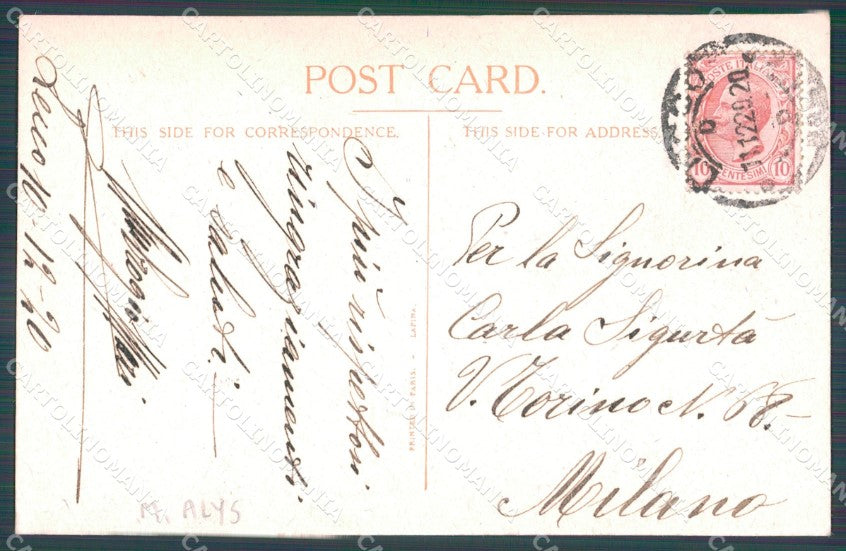 POST CARD.
THIS SIDE FOR CORRESPONDENCE.
THIS SIDE FOR ADDRESS
I più rispettosi
ringraziamenti
e saluti
Lecco 10-12-20
PRINTED IN PARIS. - LAPINA
POSTE ITALIANE
10 CENTESIMI 10
11 12 20
Per la Signorina
Carla Sigurtà
V. Torino N. 68.-
Milano
M. ALYS
CARTOLINOMANIA